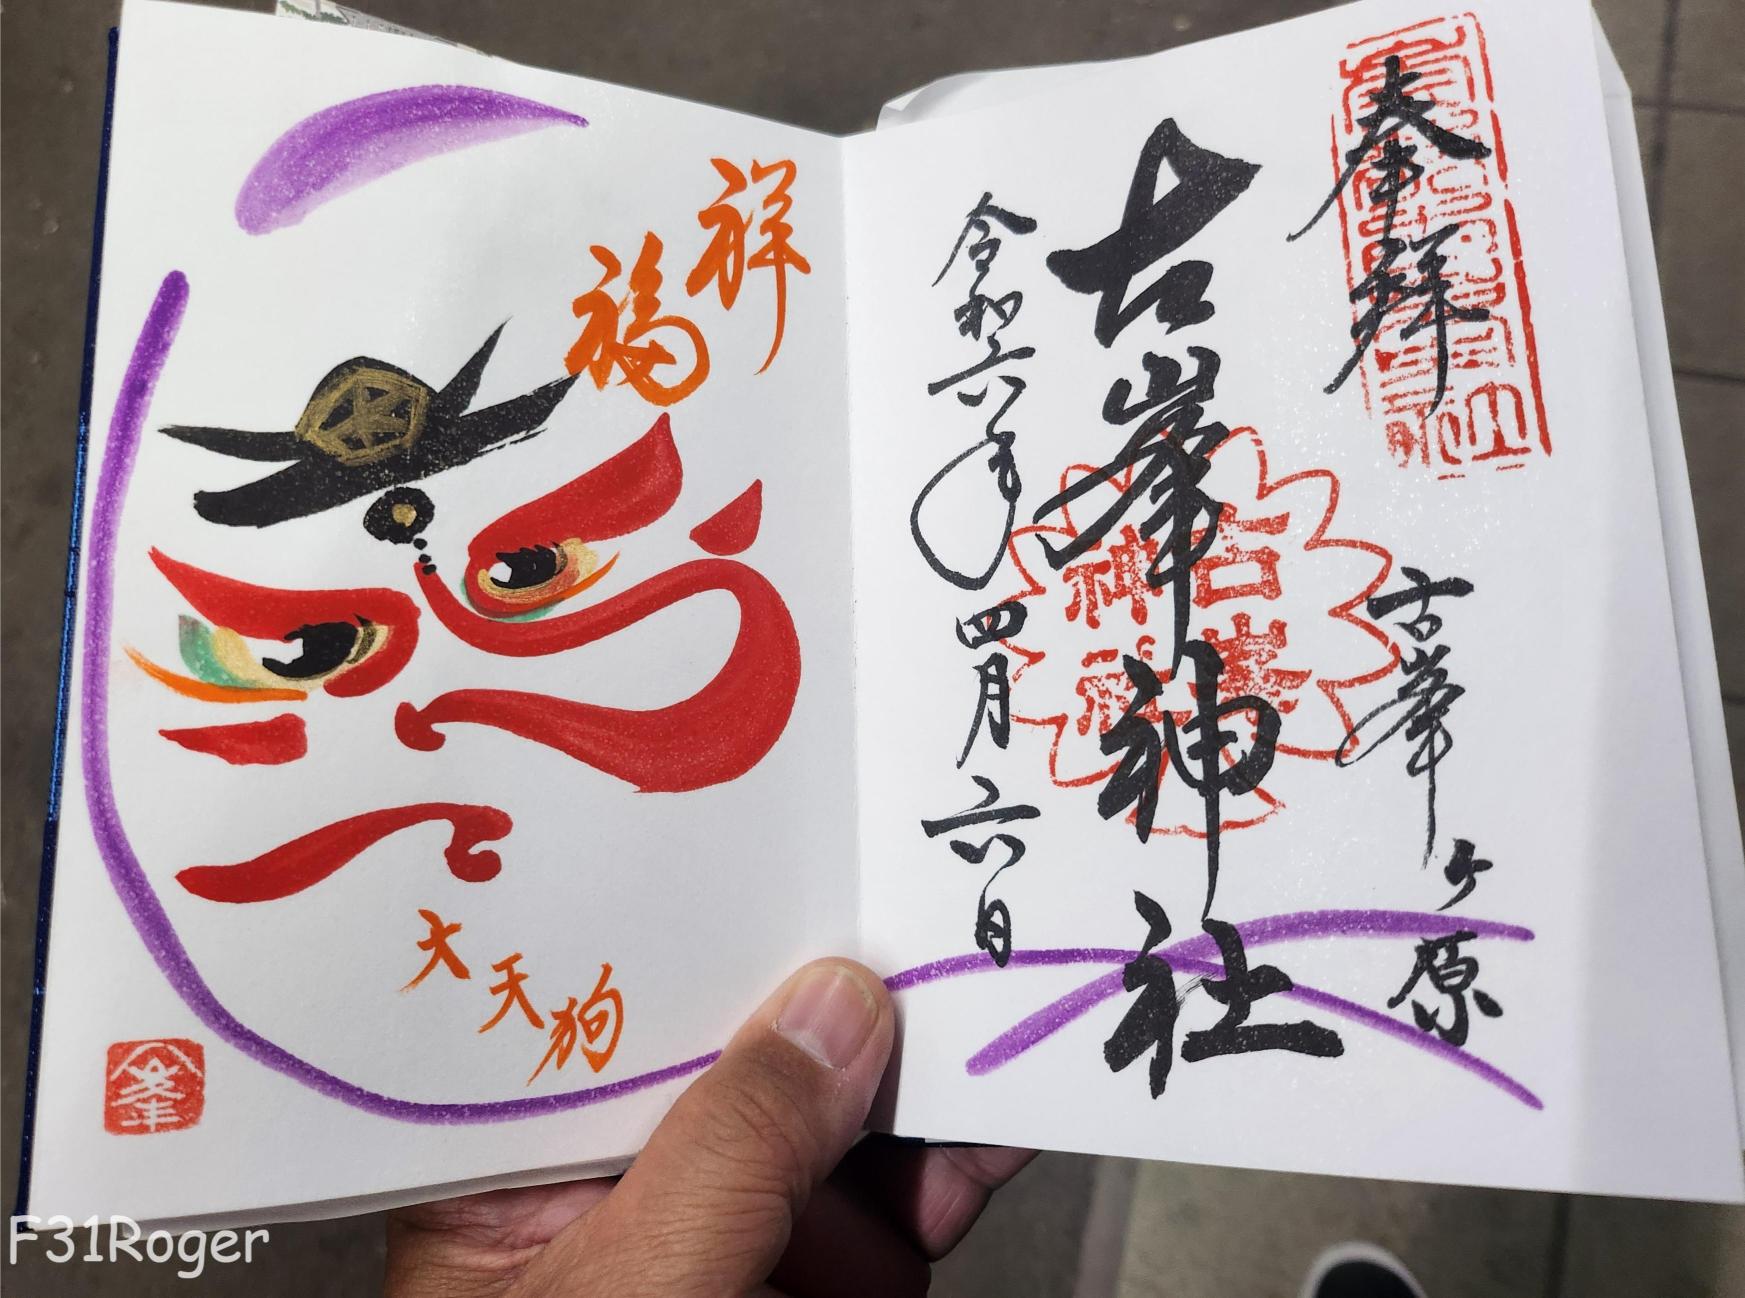 奉拝
古峯ヶ原
古峯神社
古峯
神社
令和六年四月六日
祥
福
大天狗
峯
F31Roger